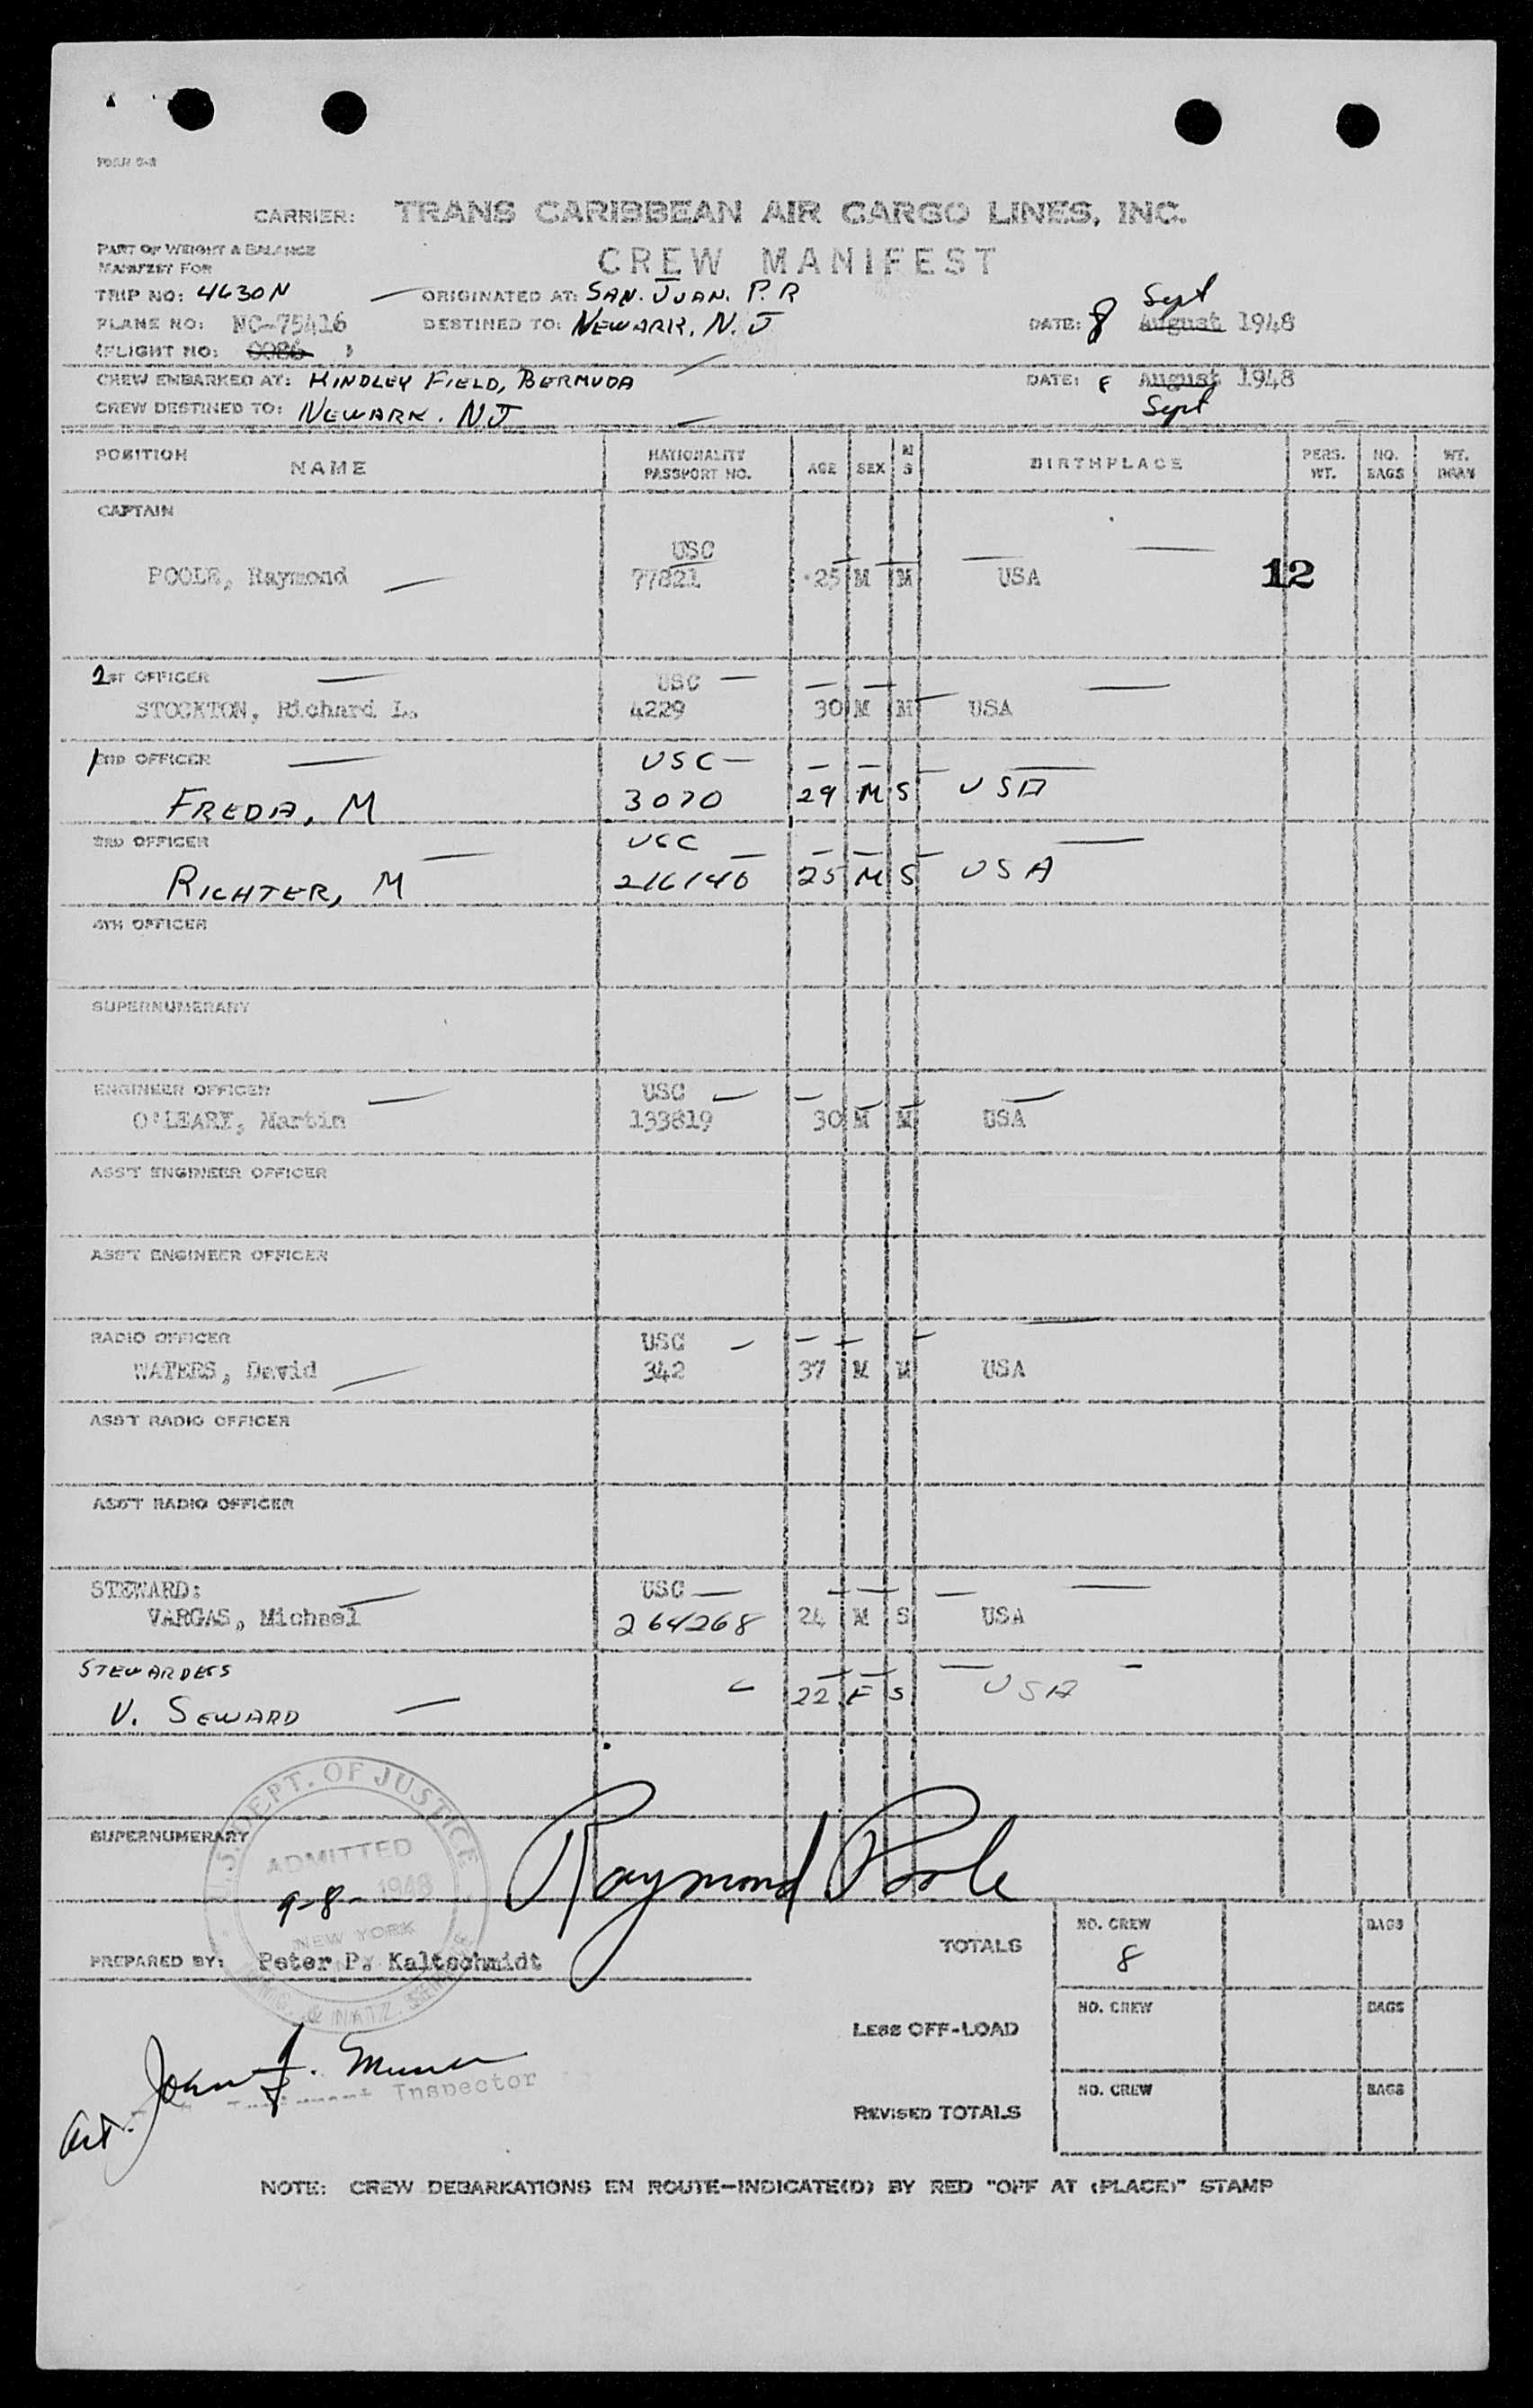 FORM 5-3
CARRIER: TRANS CARIBBEAN AIR CARGO LINES, INC.
PART OF WEIGHT & BALANCE
MANIFEST FOR
CREW MANIFEST
TRIP NO: 4630N ORIGINATED AT: SAN. JUAN. P.R
PLANE NO: NC-75416 DESTINED TO: NEWARK, N.J DATE: 8 August Sept 1948
(FLIGHT NO: 0086 )
CREW EMBARKED AT: KINDLEY FIELD, BERMUDA DATE: 8 August 1948
CREW DESTINED TO: NEWARK. NJ Sept
POSITION NAME NATIONALITY PASSPORT NO. AGE SEX M S BIRTHPLACE PERS. WT. NO. BAGS WT.
CAPTAIN
USC
POOLE, Raymond 77821 25 M M USA 12
2 ST OFFICER USC
STOCKTON, Richard L. 4229 30 M M USA
1 2ND OFFICER USC
FREDA, M 3070 29 M S USA
3RD OFFICER USC
RICHTER, M 216140 25 M S USA
4TH OFFICER
SUPERNUMERARY
ENGINEER OFFICER USC
O'LEARY, Martin 133819 30 M M USA
ASS'T ENGINEER OFFICER
ASS'T ENGINEER OFFICER
RADIO OFFICER USC
WATERS, David 342 37 M M USA
ASS'T RADIO OFFICER
ASS'T RADIO OFFICER
STEWARD: USC
VARGAS, Michael 264268 24 M S USA
STEWARDESS
V. SEWARD 22 F S USA
U.S. DEPT. OF JUSTICE
SUPERNUMERARY
ADMITTED
9-8- 1948
Raymond Poole
NEW YORK
PREPARED BY: Peter P. Kaltschmidt
IMMIG. & NATZ. SERVICE
TOTALS NO. CREW 8 BAGS
LESS OFF-LOAD NO. CREW BAGS
REVISED TOTALS NO. CREW BAGS
John J.
Inspector
NOTE: CREW DEBARKATIONS EN ROUTE-INDICATE(D) BY RED "OFF AT (PLACE)" STAMP